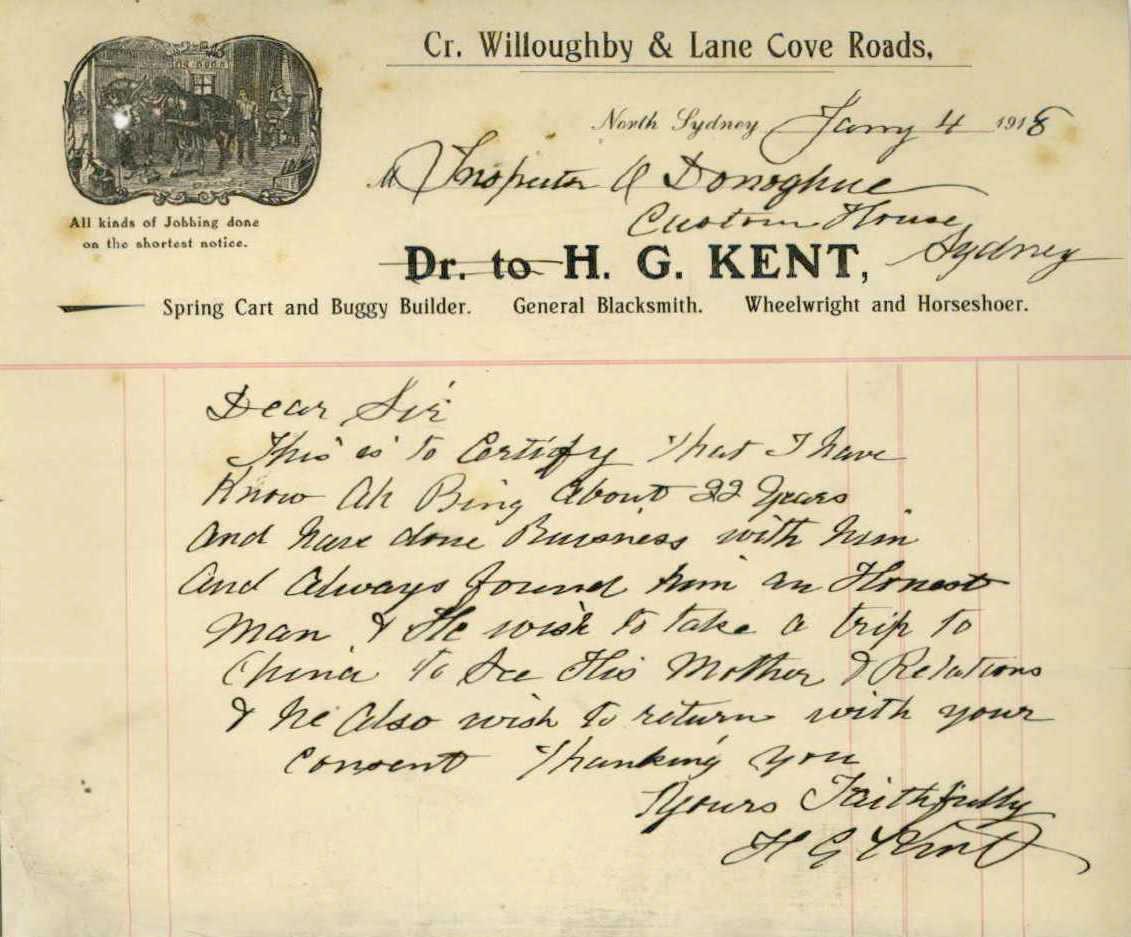 Cr. Willoughby & Lane Cove Roads,
North Sydney Jany 4 1918
M Inspector O Donoghue
Custom House
Sydney
All kinds of Jobbing done
on the shortest notice.
Dr. to H. G. KENT,
Spring Cart and Buggy Builder. General Blacksmith. Wheelwright and Horseshoer.
Dear Sir
This is to Certify that I have
Know Ah Bing about 22 Years
And have done Buisness with him
And Always found him an Honest
Man & He wish to take a trip to
China to See His Mother & Relations
& he Also wish to return with your
Consent Thanking you
Yours Faithfully
H G Kent